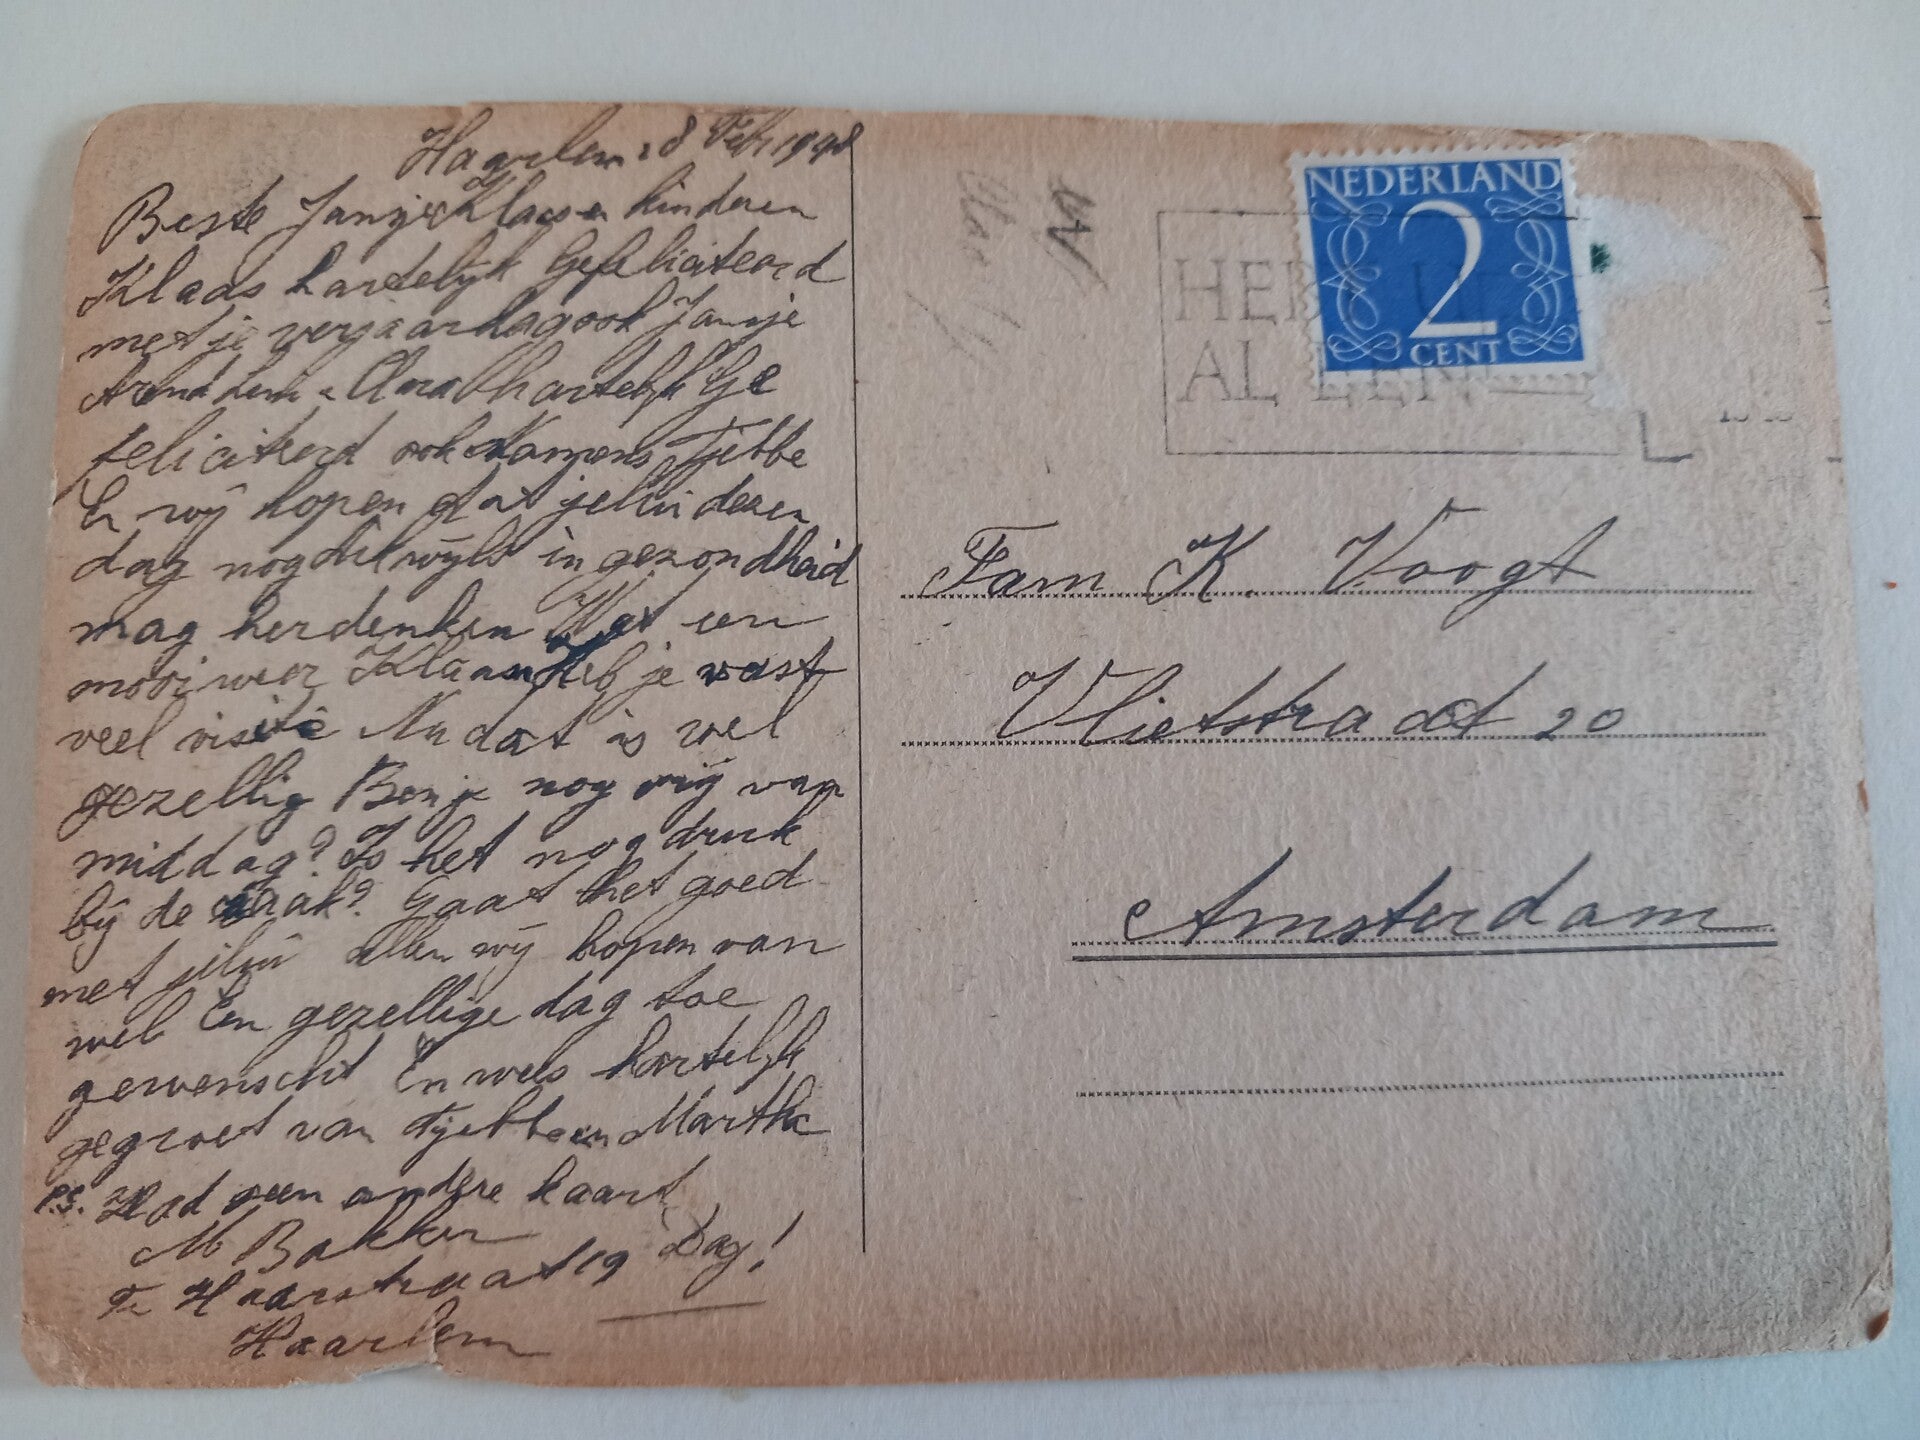 Haarlem 18 Febr 1948
Beste Jansje Klaas en kinderen
Klaas hartelijk Gefeliciteerd
met je verjaardag ook Jansje
hartelijk Ge
feliciteerd ook Namens Tjebbe
En wij hopen dat jelui dezen
dag nog dikwijls in gezondheid
mag herdenken Wat een
mooi weer Klaas Heb je vast
veel visite Nu dat is wel
gezellig Ben je nog vrij van
middag? Is het nog druk
bij de zaak? Gaat het goed
met jelui allen wij hopen van
wel En gezellige dag toe
gewenscht En wees hartelijk
gegroet van Tjebbe en Martha
P.S. Had een andere kaart
M Bakker
Te Haarstraat 19 Dag!
Haarlem
NEDERLAND
2
CENT
HEB
AL EEN
Fam K. Voogt
Vlietstraat 20
Amsterdam